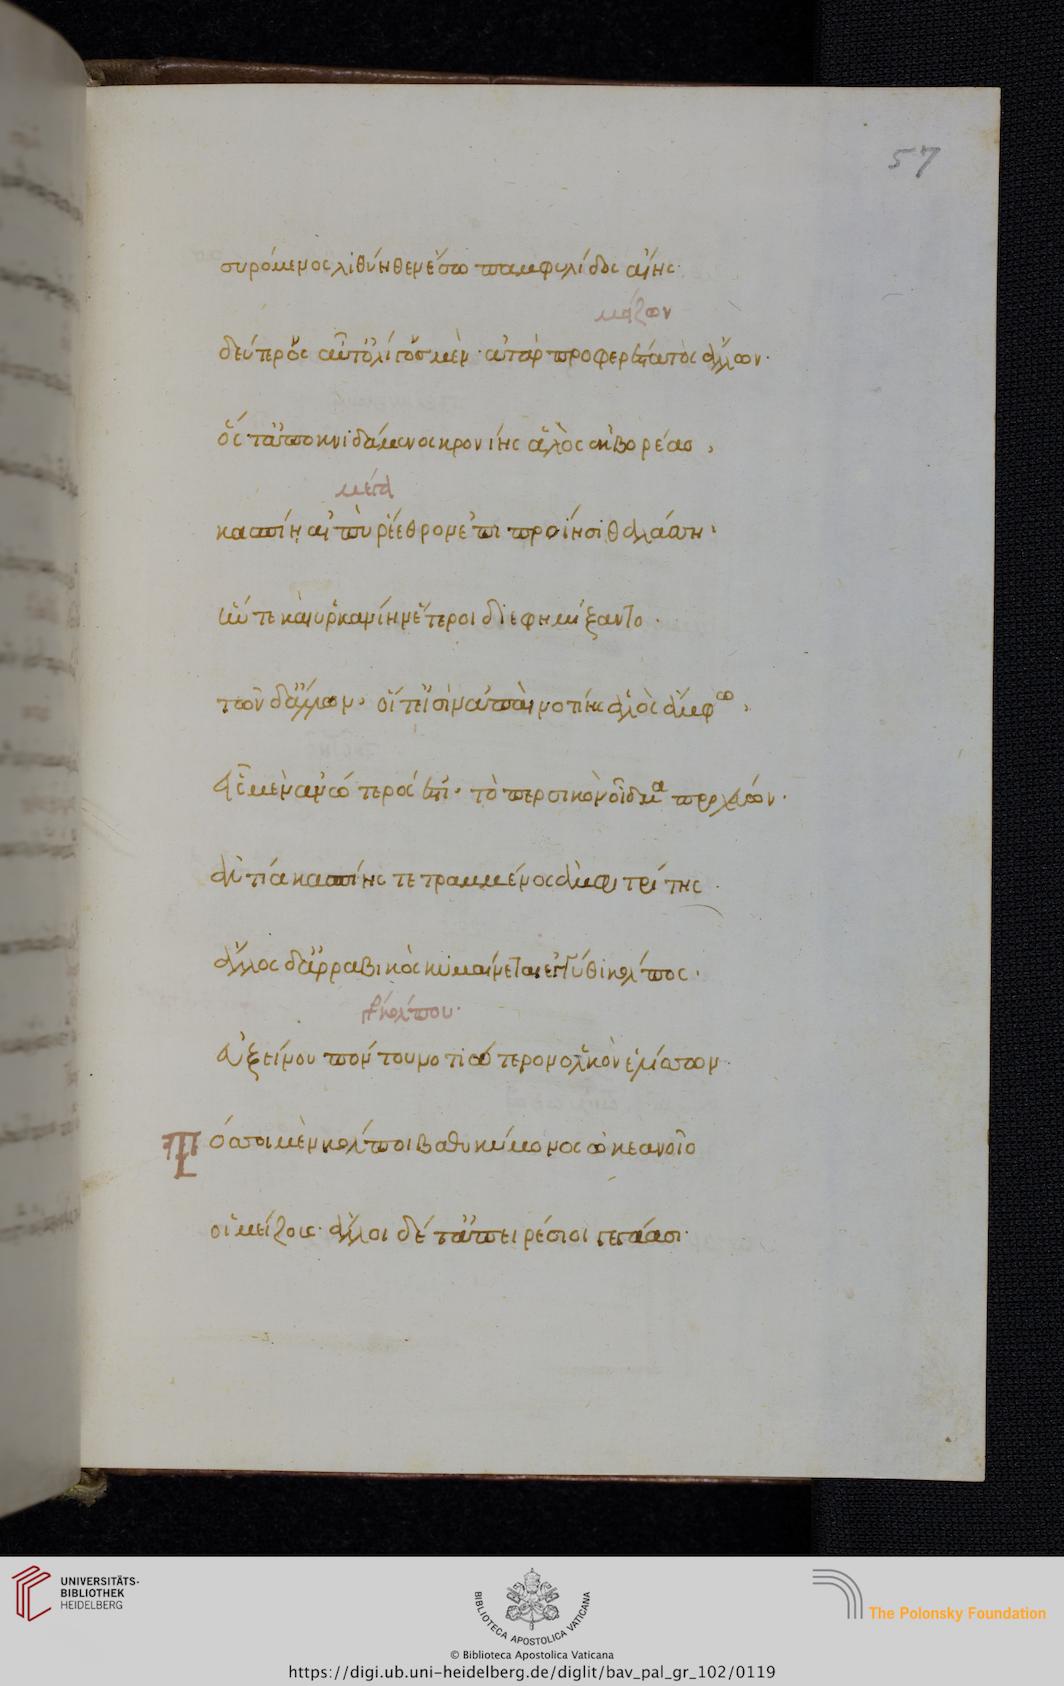 57
συρόμενος λιβύηθεν ἔσω παμφυλίδος αἴης
μείζων
δεύτερος αὖτ ὀλίγος μὲν· ἀτὰρ προφερέστατος ἄλλων·
ὅς τ ἀποκινιδάμενος κρονίης ἁλὸς ἐκ βορέαο,
μετὰ
κασπίη αἰπὺ ῥέεθρον ἐπι προίησι θαλάσση·
ἥν τε καὶ ὑρκανίην ἕτεροι διεφημίξαντο·
τῶν δ ἄλλων, οἵ τ εἰσὶν ἀπαὶ νοτίης ἁλὸς ἄμφω,
εἷς μὲν ἀνώτερός ἐστι· τὸ περσικὸν οἶδμα προχέων·
ἀντία κασπίης τετραμμένος ἀμφιτρίτης·
ἄλλος δ ἀρραβικὸς κυμαίνεται ἔνδοθι κόλπος·
κόλπου·
εὐξείνου πόντου νοτιώτερον ὁλκὸν ἑλίσσων·
Τόσσοι μὲν κόλποι βαθυκύμονος ὠκεανοῖο
οἱ μείζους· ἄλλοι δέ τ ἀπειρέσιοι γεγάασι·
UNIVERSITÄTS-
BIBLIOTHEK
HEIDELBERG
BIBLIOTECA APOSTOLICA VATICANA
The Polonsky Foundation
© Biblioteca Apostolica Vaticana
https://digi.ub.uni-heidelberg.de/diglit/bav_pal_gr_102/0119